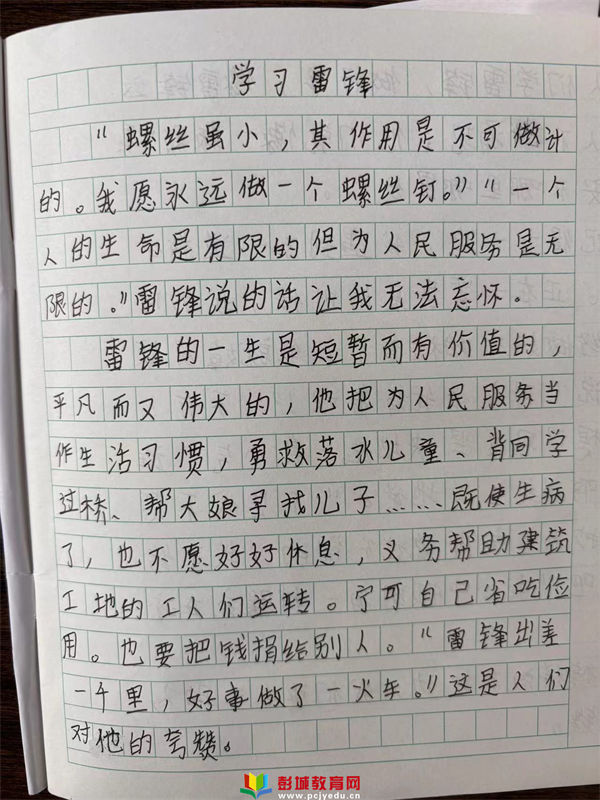 学习雷锋
“螺丝虽小，其作用是不可做计
的。我愿永远做一个螺丝钉。”“一个
人的生命是有限的但为人民服务是无
限的。”雷锋说的话让我无法忘怀.
雷锋的一生是短暂而有价值的，
平凡而又伟大的，他把为人民服务当
作生活习惯，勇救落水儿童、背同学
过桥、帮大娘寻找儿子……既使生病
了，也不愿好好休息，义务帮助建筑
工地的工人们运转。宁可自己省吃俭
用。也要把钱捐给别人。“雷锋出差
一千里，好事做了一火车。”这是人们
对他的夸赞。
彭城教育网
www.pcjyedu.cn